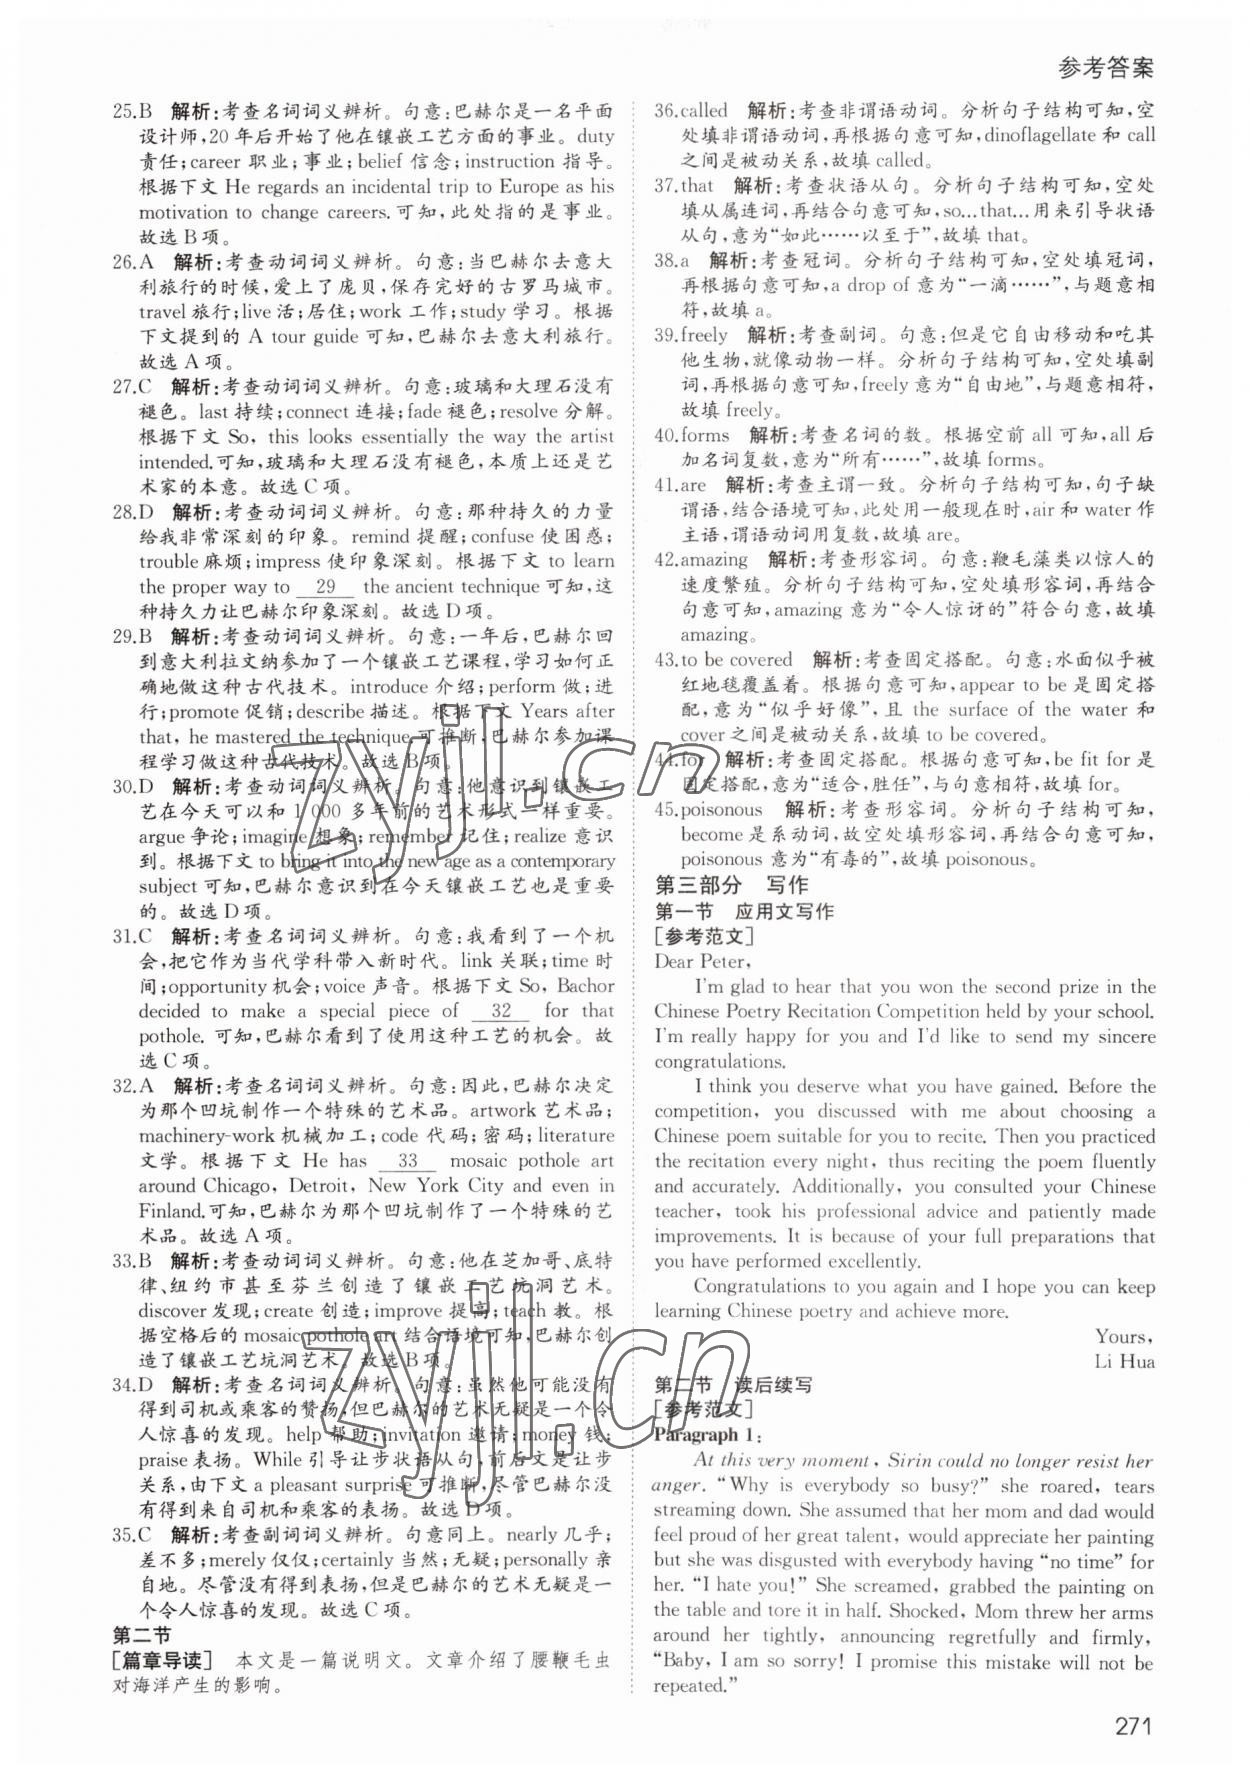 参考答案
25.B 解析:考查名词词义辨析。句意:巴赫尔是一名平面
设计师,20年后开始了他在镶嵌工艺方面的事业。duty
责任;career 职业;事业;belief 信念;instruction 指导。
根据下文 He regards an incidental trip to Europe as his
motivation to change careers.可知,此处指的是事业。
故选B项。
26.A 解析:考查动词词义辨析。句意:当巴赫尔去意大
利旅行的时候,爱上了庞贝,保存完好的古罗马城市。
travel 旅行;live 活;居住;work 工作;study 学习。根据
下文提到的 A tour guide 可知,巴赫尔去意大利旅行。
故选A项。
27.C 解析:考查动词词义辨析。句意:玻璃和大理石没有
褪色。last 持续;connect 连接;fade 褪色;resolve 分解。
根据下文 So, this looks essentially the way the artist
intended.可知,玻璃和大理石没有褪色,本质上还是艺
术家的本意。故选C项。
28.D 解析:考查动词词义辨析。句意:那种持久的力量
给我非常深刻的印象。remind 提醒;confuse 使困惑;
trouble 麻烦;impress 使印象深刻。根据下文 to learn
the proper way to 29 the ancient technique 可知,这
种持久力让巴赫尔印象深刻。故选D项。
29.B 解析:考查动词词义辨析。句意:一年后,巴赫尔回
到意大利拉文纳参加了一个镶嵌工艺课程,学习如何正
确地做这种古代技术。introduce 介绍;perform 做;进
行;promote 促销;describe 描述。根据下文 Years after
that, he mastered the technique 可推断,巴赫尔参加课
程学习做这种古代技术。故选B项。
30.D 解析:考查动词词义辨析。句意:他意识到镶嵌工
艺在今天可以和1 000 多年前的艺术形式一样重要。
argue 争论;imagine 想象;remember 记住;realize 意识
到。根据下文 to bring it into the new age as a contemporary
subject 可知,巴赫尔意识到在今天镶嵌工艺也是重要
的。故选D项。
31.C 解析:考查名词词义辨析。句意:我看到了一个机
会,把它作为当代学科带入新时代。link 关联;time 时
间;opportunity 机会;voice 声音。根据下文 So, Bachor
decided to make a special piece of 32 for that
pothole. 可知,巴赫尔看到了使用这种工艺的机会。故
选C项。
32.A 解析:考查名词词义辨析。句意:因此,巴赫尔决定
为那个凹坑制作一个特殊的艺术品。artwork 艺术品;
machinery-work 机械加工;code 代码;密码;literature
文学。根据下文 He has 33 mosaic pothole art
around Chicago, Detroit, New York City and even in
Finland.可知,巴赫尔为那个凹坑制作了一个特殊的艺
术品。故选A项。
33.B 解析:考查动词词义辨析。句意:他在芝加哥、底特
律、纽约市甚至芬兰创造了镶嵌工艺坑洞艺术。
discover 发现;create 创造;improve 提高;teach 教。根
据空格后的 mosaic pothole art 结合语境可知,巴赫尔创
造了镶嵌工艺坑洞艺术。故选B项。
34.D 解析:考查名词词义辨析。句意:虽然他可能没有
得到司机或乘客的赞扬,但巴赫尔的艺术无疑是一个令
人惊喜的发现。help 帮助;invitation 邀请;money 钱;
praise 表扬。While 引导让步状语从句,前后文是让步
关系,由下文 a pleasant surprise 可推断,尽管巴赫尔没
有得到来自司机和乘客的表扬。故选D项。
35.C 解析:考查副词词义辨析。句意同上。nearly 几乎;
差不多;merely 仅仅;certainly 当然;无疑;personally 亲
自地。尽管没有得到表扬,但是巴赫尔的艺术无疑是一
个令人惊喜的发现。故选C项。
第二节
[篇章导读] 本文是一篇说明文。文章介绍了腰鞭毛虫
对海洋产生的影响。
36.called 解析:考查非谓语动词。分析句子结构可知,空
处填非谓语动词,再根据句意可知,dinoflagellate 和 call
之间是被动关系,故填 called。
37.that 解析:考查状语从句。分析句子结构可知,空处
填从属连词,再结合句意可知,so...that...用来引导状语
从句,意为“如此……以至于”,故填 that。
38.a 解析:考查冠词。分析句子结构可知,空处填冠词,
再根据句意可知,a drop of 意为“一滴……”,与题意相
符,故填 a。
39.freely 解析:考查副词。句意:但是它自由移动和吃其
他生物,就像动物一样。分析句子结构可知,空处填副
词,再根据句意可知,freely 意为“自由地”,与题意相符,
故填 freely。
40.forms 解析:考查名词的数。根据空前 all 可知,all 后
加名词复数,意为“所有……”,故填 forms。
41.are 解析:考查主谓一致。分析句子结构可知,句子缺
谓语,结合语境可知,此处用一般现在时,air 和 water 作
主语,谓语动词用复数,故填 are。
42.amazing 解析:考查形容词。句意:鞭毛藻类以惊人的
速度繁殖。分析句子结构可知,空处填形容词,再结合
句意可知,amazing 意为“令人惊讶的”符合句意,故填
amazing。
43.to be covered 解析:考查固定搭配。句意:水面似乎被
红地毯覆盖着。根据句意可知,appear to be 是固定搭
配,意为“似乎好像”,且 the surface of the water 和
cover 之间是被动关系,故填 to be covered。
44.for 解析:考查固定搭配。根据句意可知,be fit for 是
固定搭配,意为“适合,胜任”,与句意相符,故填 for。
45.poisonous 解析:考查形容词。分析句子结构可知,
become 是系动词,故空处填形容词,再结合句意可知,
poisonous 意为“有毒的”,故填 poisonous。
第三部分 写作
第一节 应用文写作
[参考范文]
Dear Peter,
I'm glad to hear that you won the second prize in the
Chinese Poetry Recitation Competition held by your school.
I'm really happy for you and I'd like to send my sincere
congratulations.
I think you deserve what you have gained. Before the
competition, you discussed with me about choosing a
Chinese poem suitable for you to recite. Then you practiced
the recitation every night, thus reciting the poem fluently
and accurately. Additionally, you consulted your Chinese
teacher, took his professional advice and patiently made
improvements. It is because of your full preparations that
you have performed excellently.
Congratulations to you again and I hope you can keep
learning Chinese poetry and achieve more.
Yours,
Li Hua
第二节 读后续写
[参考范文]
Paragraph 1:
At this very moment, Sirin could no longer resist her
anger. “Why is everybody so busy?” she roared, tears
streaming down. She assumed that her mom and dad would
feel proud of her great talent, would appreciate her painting
but she was disgusted with everybody having “no time” for
her. “I hate you!” She screamed, grabbed the painting on
the table and tore it in half. Shocked, Mom threw her arms
around her tightly, announcing regretfully and firmly,
“Baby, I am so sorry! I promise this mistake will not be
repeated.”
271
zyjl.cn
zyjl.cn